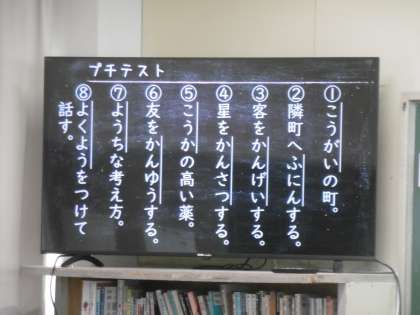 プチテスト
①こうがいの町。
②隣町へふにんする。
③客をかんげいする。
④星をかんさつする。
⑤こうかの高い薬。
⑥友をかんゆうする。
⑦ようちな考え方。
⑧よくようをつけて
話す。